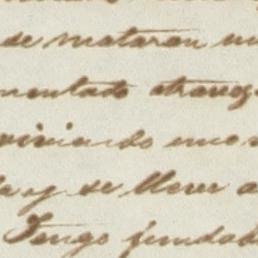 se mataran un
mentado atraves
viviendo unos
la y se llever a
Tengo fundad